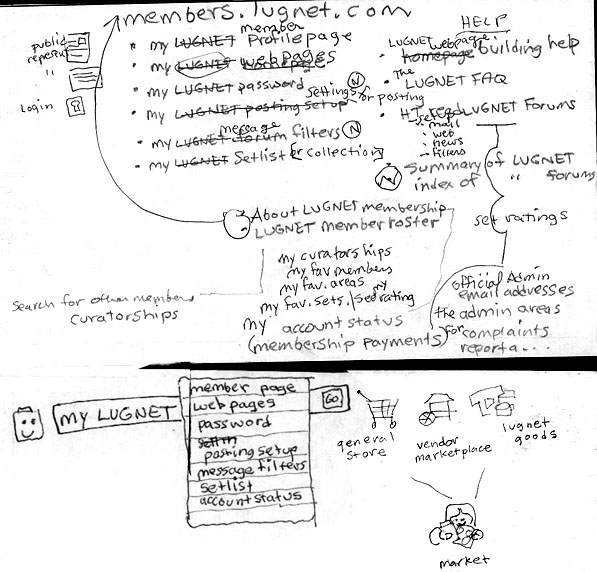 members.lugnet.com
public
repertut
"
Login
member
my LUGNET Profile page
my LUGNET homepage webpages
my LUGNET password
settings for posting
my LUGNET posting setup
N
message
my LUGNET forum filters N
my LUGNET Setlist (or Collection)
HELP
LUGNET webpage
homepage building help
The LUGNET FAQ
HT read LUGNET Forums
setup
mail
web
news
filters
N Summary of LUGNET Forums
index of " "
set ratings
About LUGNET membership
LUGNET member roster
my curatorships
my fav members
my fav. areas
my fav. sets. / my set rating
my account status
(membership payments)
Search for other members
curatorships
official Admin
email addresses
the admin areas
for complaints
reporta...
MY LUGNET
member page
web pages
password
posting setup
message filters
setlist
account status
GO
general
store
vendor
marketplace
lugnet
goods
market